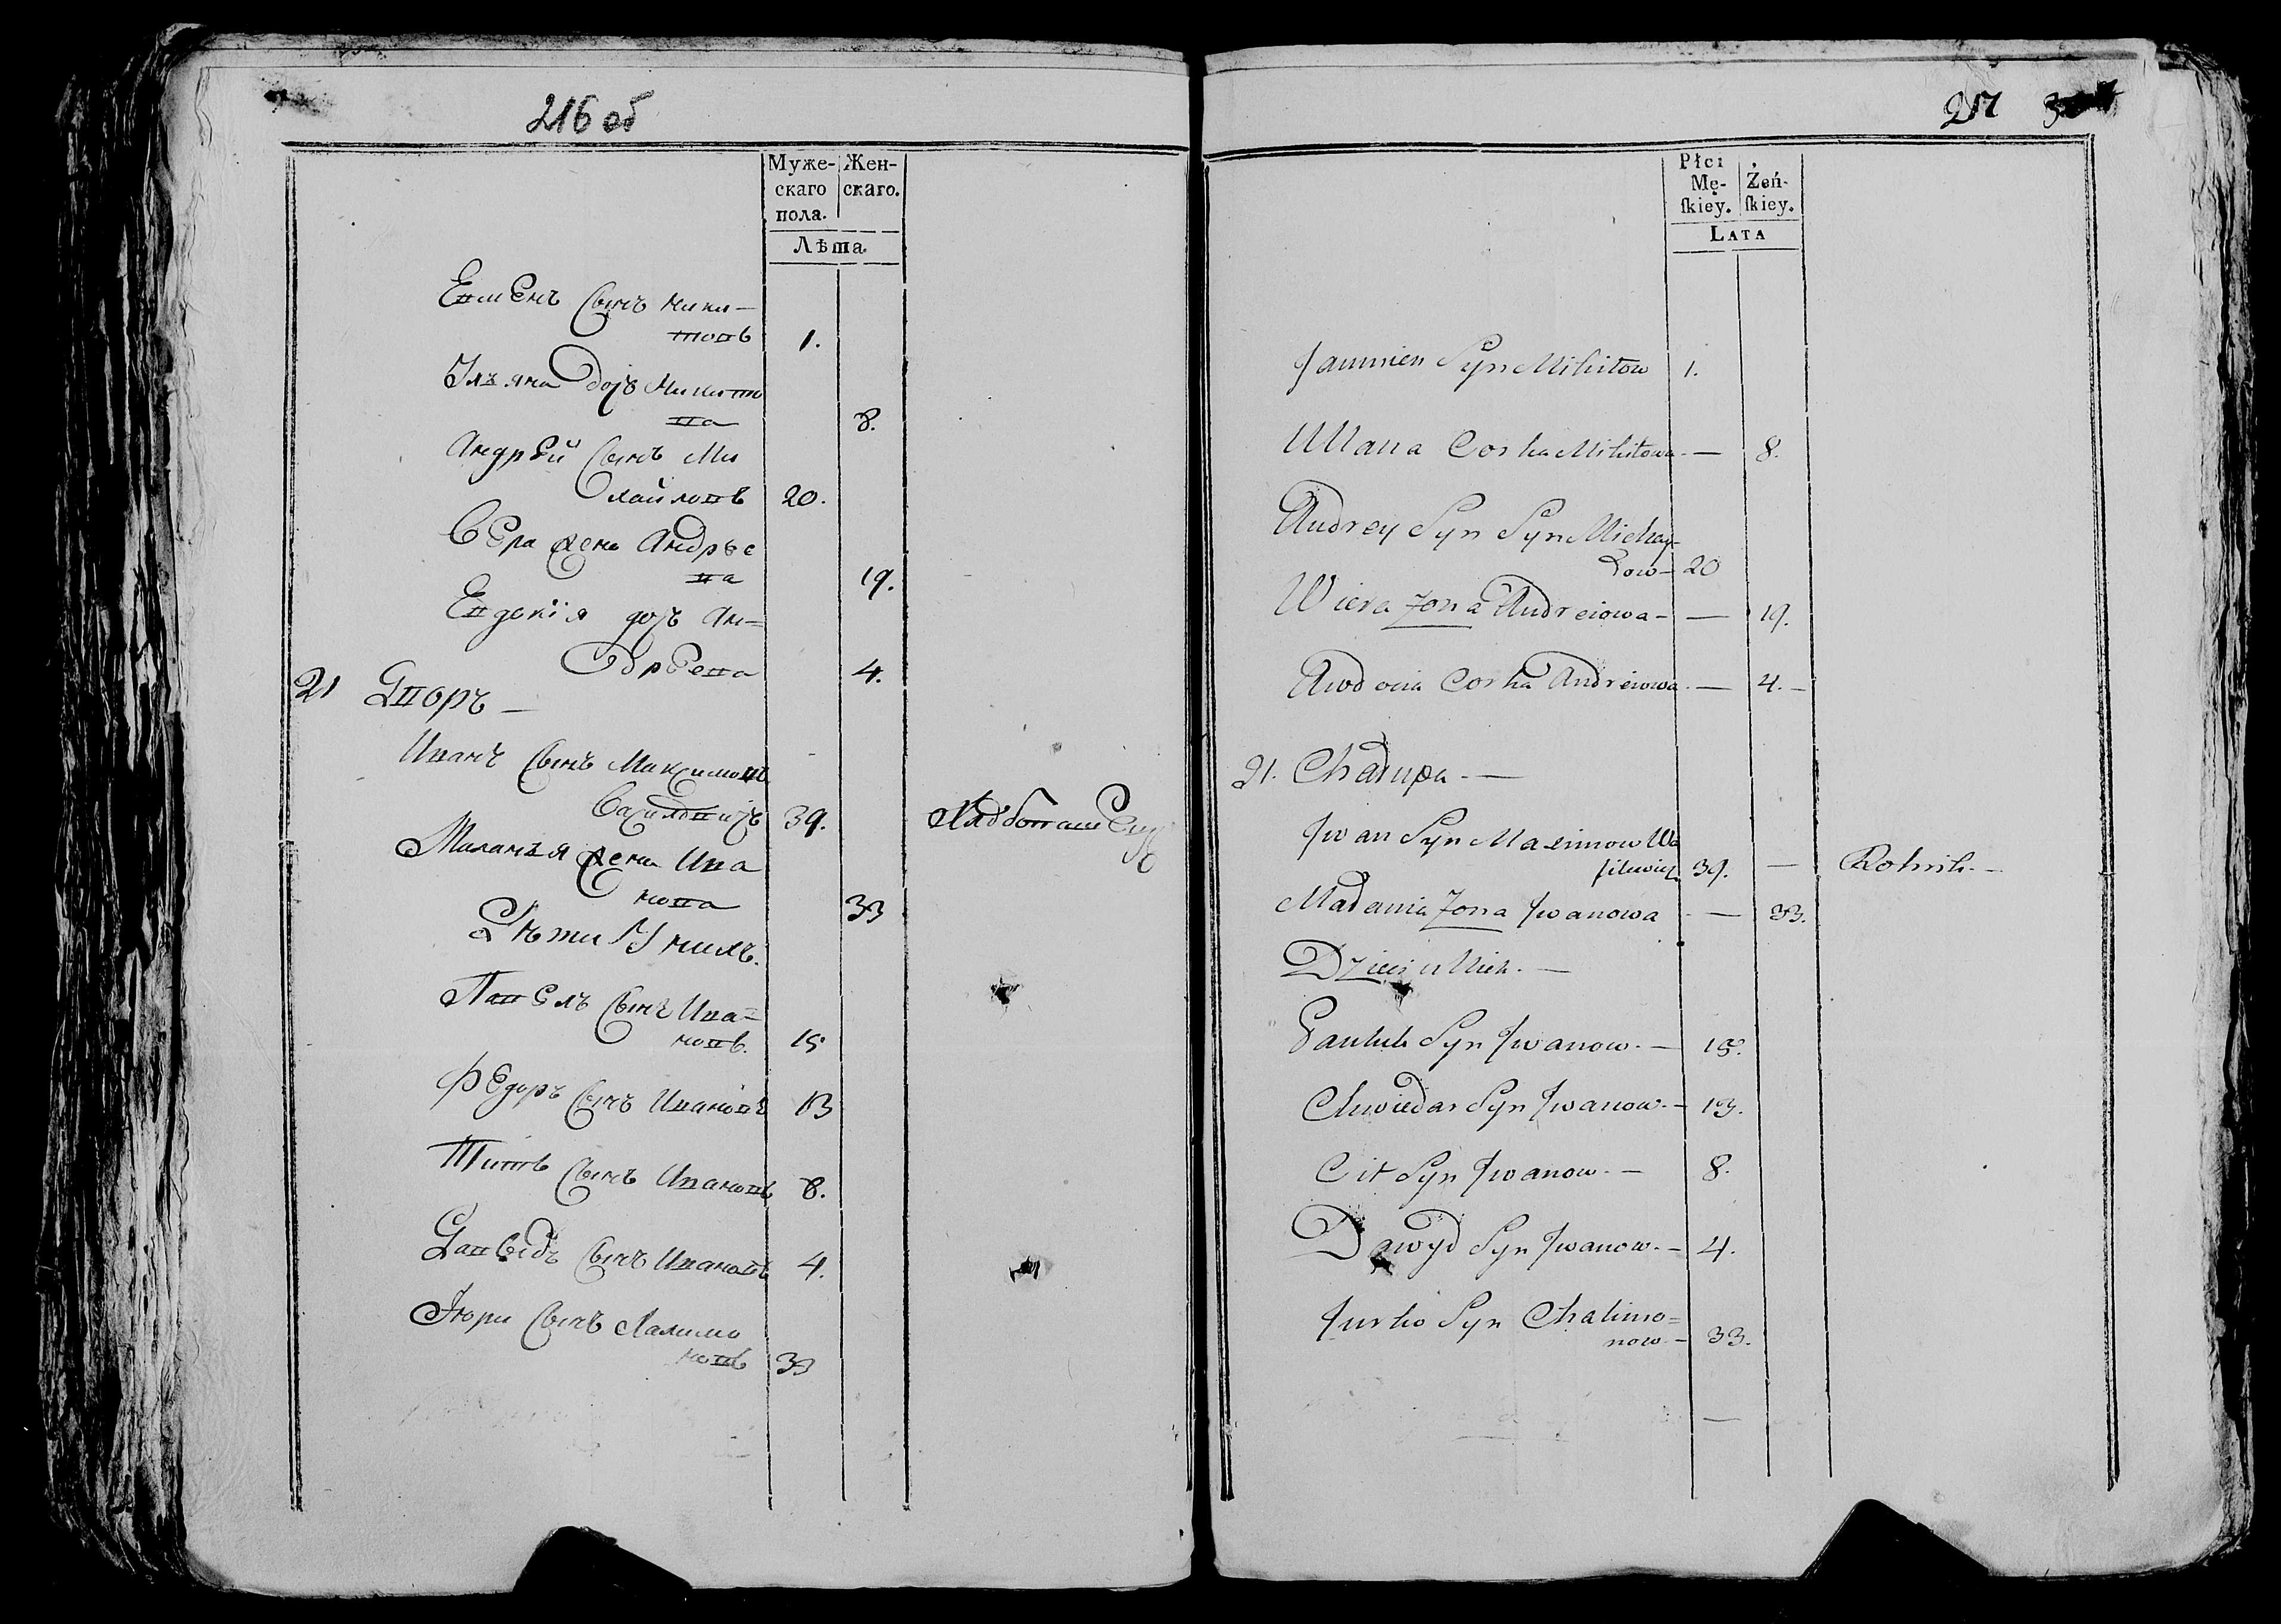 216 об
Муже- Жен-
скаго скаго.
пола.
Лѣта
Сынъ Ники-
товъ 1.
Ульяна дочь Никито
ва 8.
Андрей Сынъ Ми
хайловъ 20.
Вера жена Андрее
ва 19.
Евдокія дочь Ан=
дреева 4.
21 Дворъ —
Иванъ Сынъ Максимовъ
39.
Маланья жена Ива
нова 33
Дѣти У нихъ.
Павелъ Сынъ Ива=
новъ. 15
Федоръ Сынъ Ивановъ 13
Титъ Сынъ Ивановъ 8.
Давыдъ Сынъ Ивановъ 4.
Юри Сынъ Халимо
новъ 33
217
Płci
Mę- Żeń-
ſkiey. ſkiey.
LATA
Syn Mikitow 1.
Ullana Corka Mikitowa — 8.
Andrey Syn Syn Michay-
łow — 20
Wiera Zona Andreiowa — — 19.
Awdocia Corka Andreiowa — 4. —
21. Chałupa. —
Jwan Syn Maximow Wa
ſilewicz 39. — Rolnik. —
Małania Zona Jwanowa — 33.
Dzieci u Nich. —
Pauluk Syn Jwanow. — 15.
Chwiedar Syn Jwanow. — 13.
Cit Syn Jwanow. — 8.
Dawyd Syn Jwanow. — 4.
Jurko Syn Chalimo=
now — 33.
—